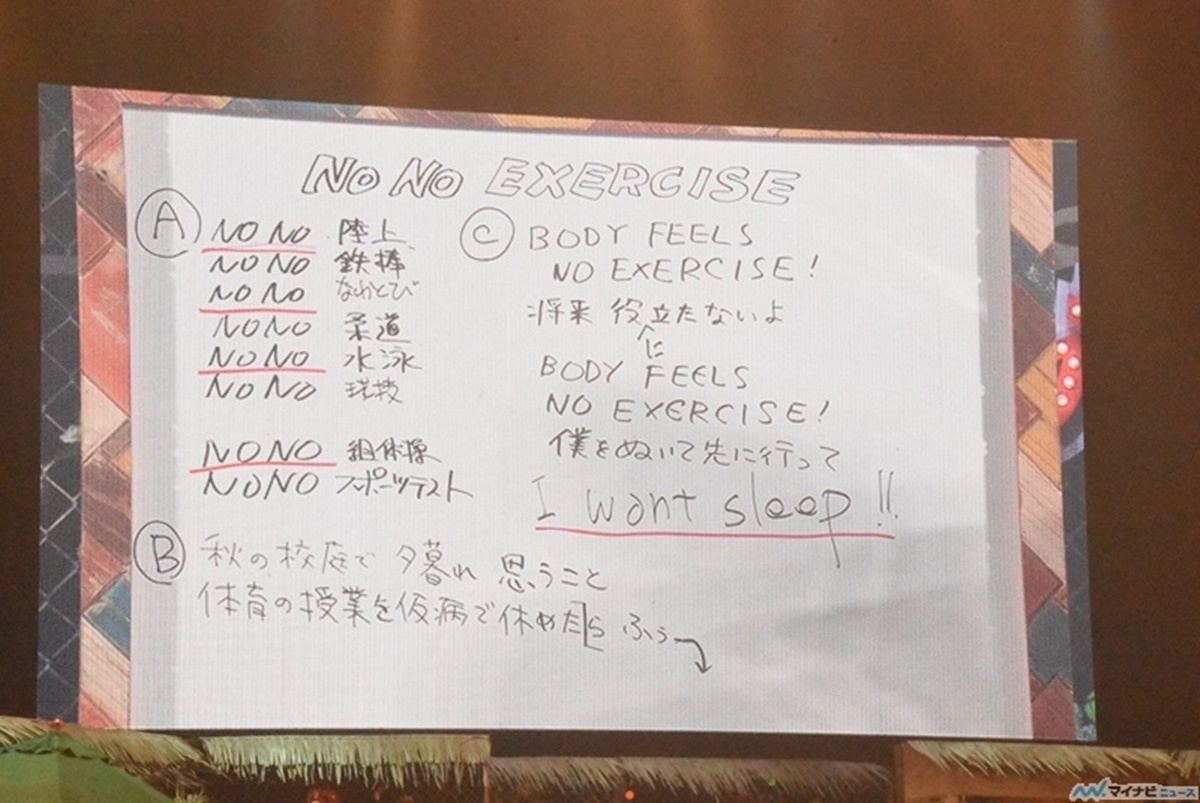 NO NO EXERCISE
A
NO NO 陸上
NO NO 鉄棒
NO NO なわとび
NO NO 柔道
NO NO 水泳
NO NO 球技
NO NO 組体操
NO NO スポーツテスト
B
秋の校庭で 夕暮れ 思うこと
体育の授業を仮病で休めたら ふぅ
C
BODY FEELS
NO EXERCISE!
将来 役に立たないよ
BODY FEELS
NO EXERCISE!
僕をぬいて先に行って
I want sleep!!
マイナビニュース